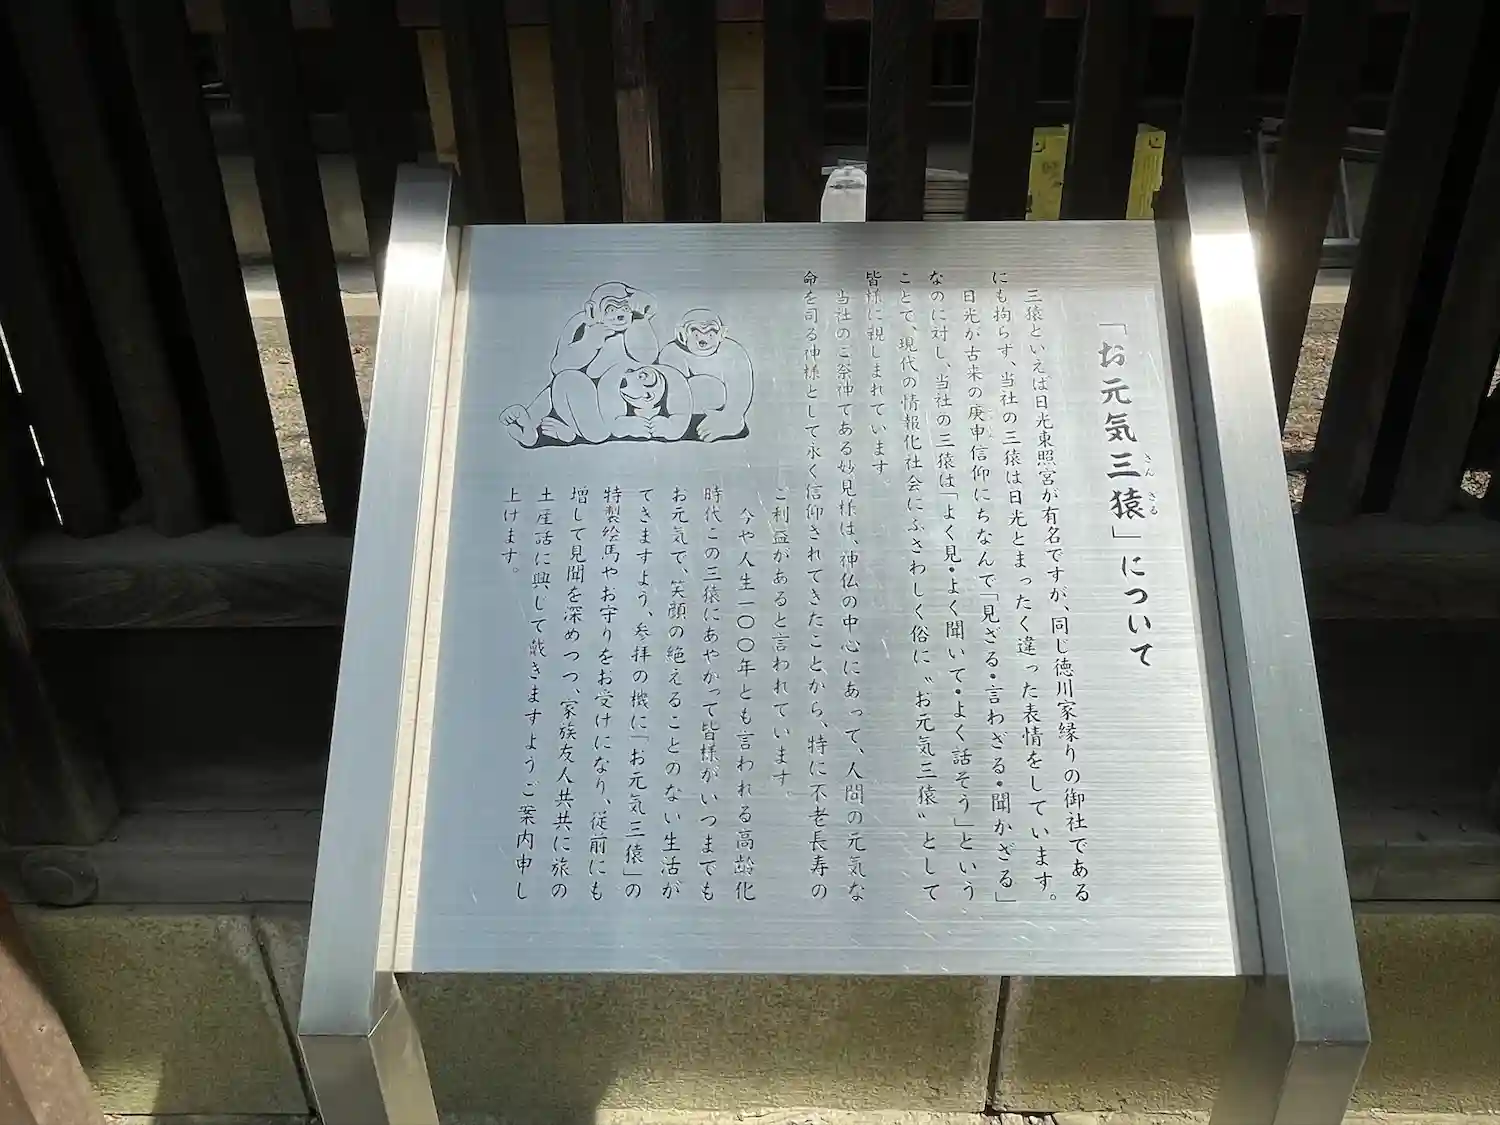 「お元気三猿」について
さんざる
三猿といえば日光東照宮が有名ですが、同じ徳川家縁りの御社である
にも拘らず、当社の三猿は日光とまったく違った表情をしています。
日光が古来の庚申信仰にちなんで「見ざる・言わざる・聞かざる」
なのに対し、当社の三猿は「よく見・よく聞いて・よく話そう」という
ことで、現代の情報化社会にふさわしく俗に〝お元気三猿〟として
皆様に親しまれています。
当社のご祭神である妙見様は、神仏の中心にあって、人間の元気な
命を司る神様として永く信仰されてきたことから、特に不老長寿の
ご利益があると言われています。
今や人生一〇〇年とも言われる高齢化
時代この三猿にあやかって皆様がいつまでも
お元気で、笑顔の絶えることのない生活が
できますよう、参拝の機に「お元気三猿」の
特製絵馬やお守りをお受けになり、従前にも
増して見聞を深めつつ、家族友人共共に旅の
土産話に興して戴きますようご案内申し
上げます。